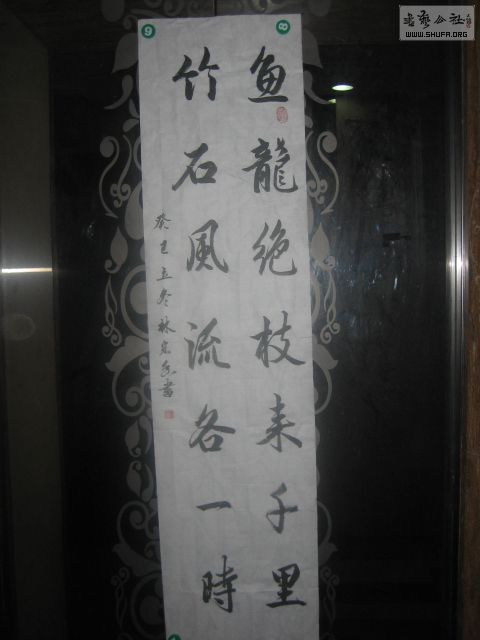 書藝公社
WWW.SHUFA.ORG
8
9
鱼龍绝枝来千里
竹石風流各一時
癸巳立冬林書